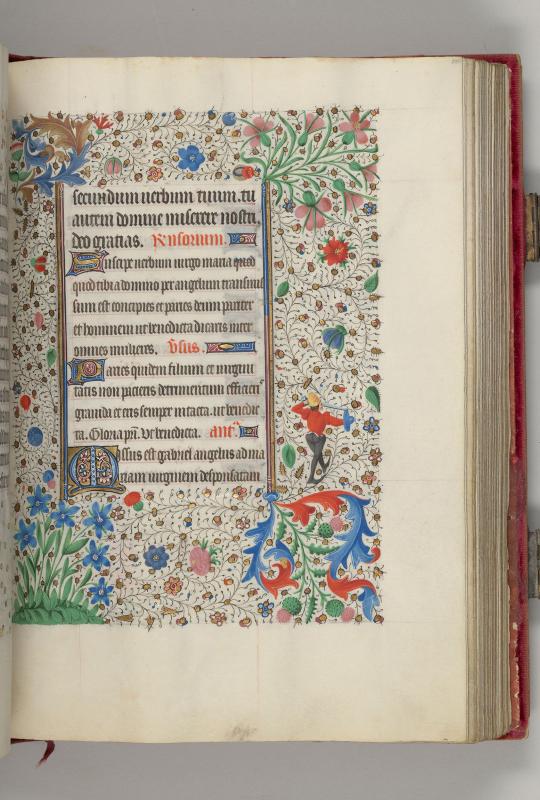 secundum uerbum tuum. tu
autem domine miserere nostri.
Deo gratias. Rnsorium.
Suscipe uerbum uirgo maria quod
quod tibi a domino per angelum transmis
sum est concipies et paries deum pariter
et hominem ut benedicta dicaris inter
omnes mulieres. Vsus.
Paries quidem filium et uirgini
tatis non pacieris detrimentum efficieris
grauida et eris semper intacta. ut benedic
ta. Gloria pri. Ut benedicta. ant.
Missus est gabriel angelus ad ma
riam uirginem desponsatam